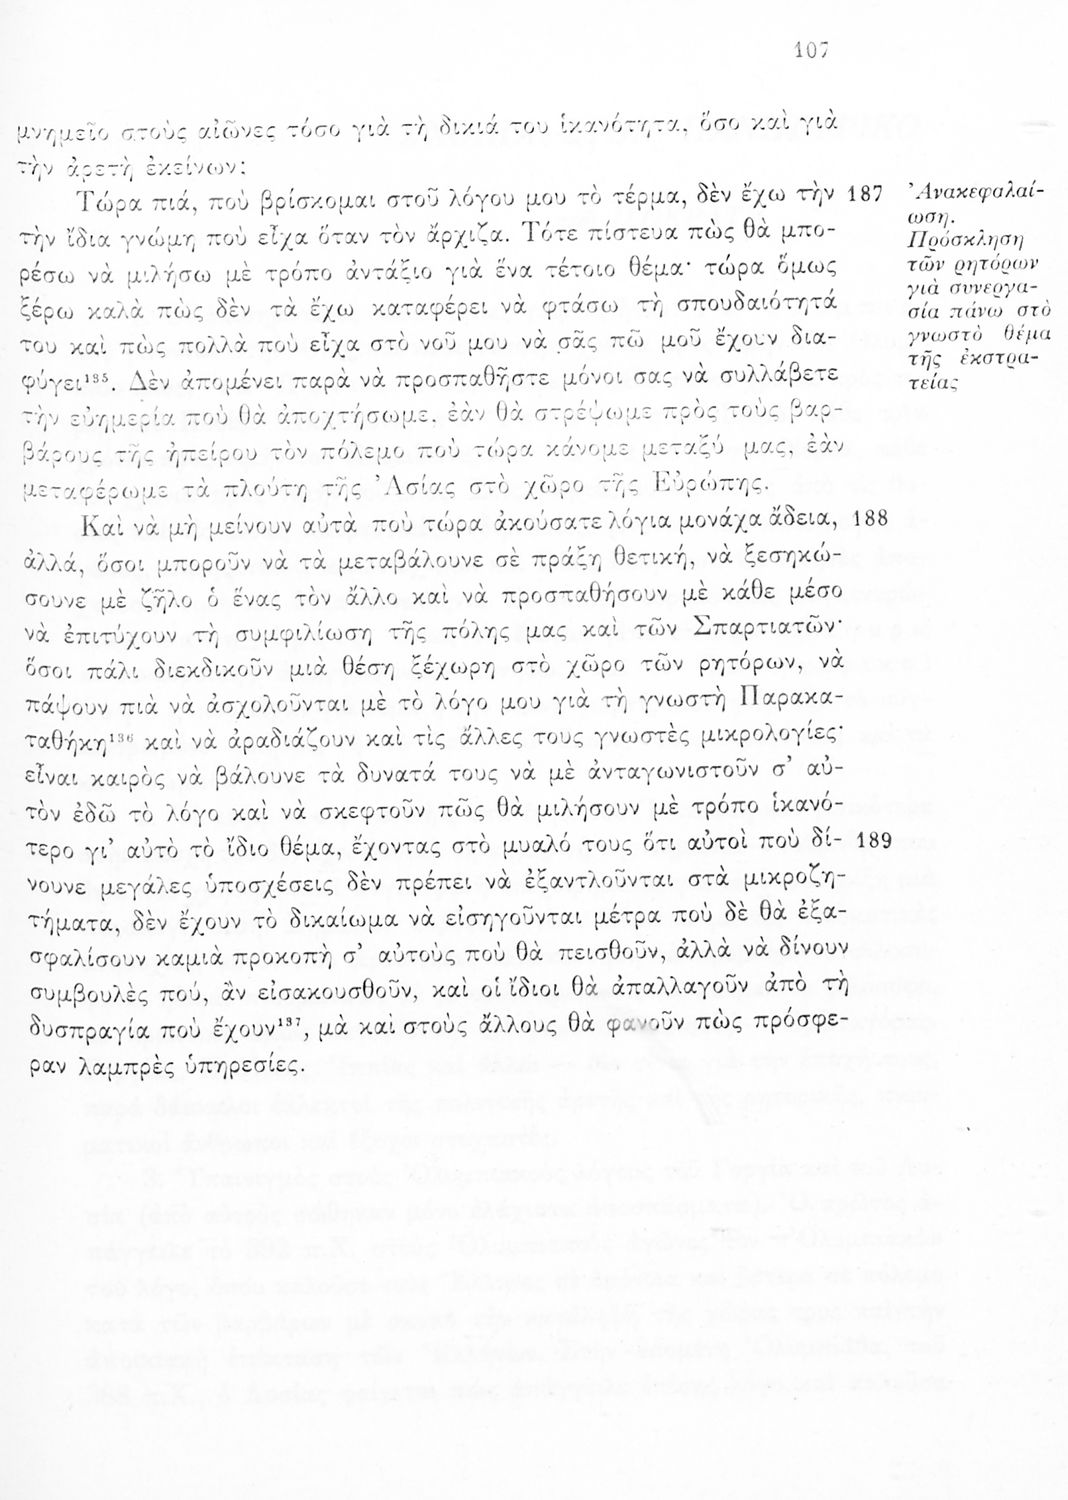 107
μνημεῖο στοὺς αἰῶνες τόσο γιὰ τὴ δικιά του ἱκανότητα, ὅσο καὶ γιὰ
τὴν ἀρετὴ ἐκείνων;
Τώρα πιά, ποὺ βρίσκομαι στοῦ λόγου μου τὸ τέρμα, δὲν ἔχω τὴν 187
τὴν ἴδια γνώμη ποὺ εἶχα ὅταν τὸν ἄρχιζα. Τότε πίστευα πὼς θὰ μπο-
ρέσω νὰ μιλήσω μὲ τρόπο ἀντάξιο γιὰ ἕνα τέτοιο θέμα· τώρα ὅμως
ξέρω καλὰ πὼς δὲν τὰ ἔχω καταφέρει νὰ φτάσω τὴ σπουδαιότητά
του καὶ πὼς πολλὰ ποὺ εἶχα στὸ νοῦ μου νὰ σᾶς πῶ μοῦ ἔχουν δια-
φύγει¹³⁵. Δὲν ἀπομένει παρὰ νὰ προσπαθῆστε μόνοι σας νὰ συλλάβετε
τὴν εὐημερία ποὺ θὰ ἀποχτήσωμε, ἐὰν θὰ στρέψωμε πρὸς τοὺς βαρ-
βάρους τῆς ἠπείρου τὸν πόλεμο ποὺ τώρα κάνομε μεταξύ μας, ἐὰν
μεταφέρωμε τὰ πλούτη τῆς Ἀσίας στὸ χῶρο τῆς Εὐρώπης.
Καὶ νὰ μὴ μείνουν αὐτὰ ποὺ τώρα ἀκούσατε λόγια μονάχα ἄδεια, 188
ἀλλά, ὅσοι μποροῦν νὰ τὰ μεταβάλουνε σὲ πράξη θετική, νὰ ξεσηκώ-
σουνε μὲ ζῆλο ὁ ἕνας τὸν ἄλλο καὶ νὰ προσπαθήσουν μὲ κάθε μέσο
νὰ ἐπιτύχουν τὴ συμφιλίωση τῆς πόλης μας καὶ τῶν Σπαρτιατῶν·
ὅσοι πάλι διεκδικοῦν μιὰ θέση ξέχωρη στὸ χῶρο τῶν ρητόρων, νὰ
πάψουν πιὰ νὰ ἀσχολοῦνται μὲ τὸ λόγο μου γιὰ τὴ γνωστὴ Παρακα-
ταθήκη¹³⁶ καὶ νὰ ἀραδιάζουν καὶ τὶς ἄλλες τους γνωστὲς μικρολογίες·
εἶναι καιρὸς νὰ βάλουνε τὰ δυνατά τους νὰ μὲ ἀνταγωνιστοῦν σ' αὐ-
τὸν ἐδῶ τὸ λόγο καὶ νὰ σκεφτοῦν πῶς θὰ μιλήσουν μὲ τρόπο ἱκανό-
τερο γι' αὐτὸ τὸ ἴδιο θέμα, ἔχοντας στὸ μυαλό τους ὅτι αὐτοὶ ποὺ δί- 189
νουνε μεγάλες ὑποσχέσεις δὲν πρέπει νὰ ἐξαντλοῦνται στὰ μικροζη-
τήματα, δὲν ἔχουν τὸ δικαίωμα νὰ εἰσηγοῦνται μέτρα ποὺ δὲ θὰ ἐξα-
σφαλίσουν καμιὰ προκοπὴ σ' αὐτοὺς ποὺ θὰ πεισθοῦν, ἀλλὰ νὰ δίνουν
συμβουλὲς πού, ἂν εἰσακουσθοῦν, καὶ οἱ ἴδιοι θὰ ἀπαλλαγοῦν ἀπὸ τὴ
δυσπραγία ποὺ ἔχουν¹³⁷, μὰ καὶ στοὺς ἄλλους θὰ φανοῦν πὼς πρόσφε-
ραν λαμπρὲς ὑπηρεσίες.
Ἀνακεφαλαί-
ωση.
Πρόσκληση
τῶν ρητόρων
γιὰ συνεργα-
σία πάνω στὸ
γνωστὸ θέμα
τῆς ἐκστρα-
τείας